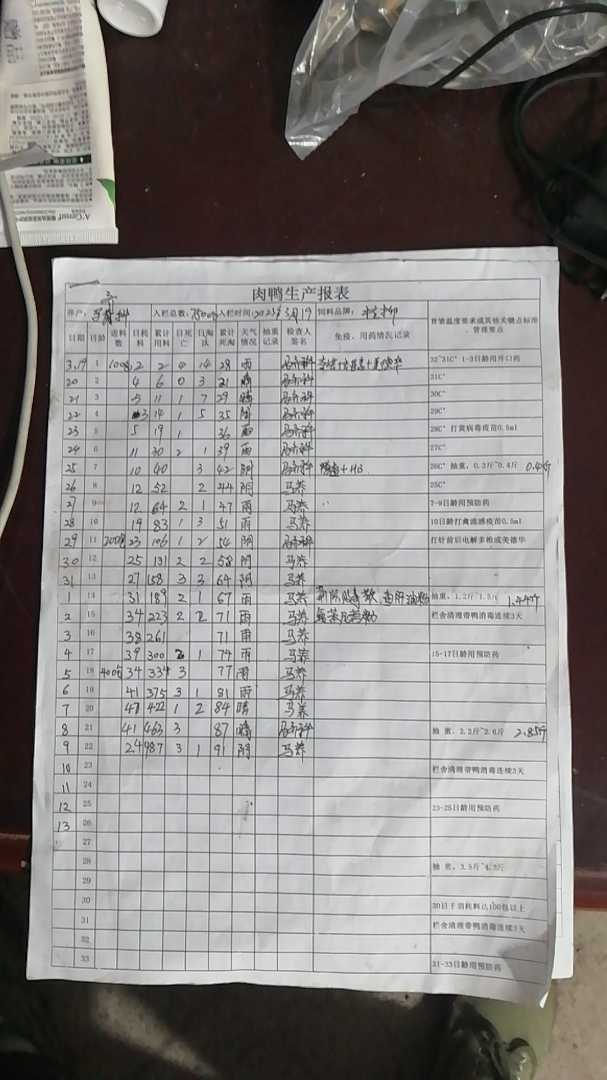 A'Gensn
肉鸭生产报表
养户: 入栏总数: 7500 入栏时间: 2023年3月19 饲料品牌: 桂柳
日期 日龄 进料数 日耗料 累计用料 日死亡 日淘汰 累计死淘 天气情况 抽重记录 检查人签名 免疫、用药情况记录 育雏温度要求或其他关键点标准、管理要点
3.19 1 100包 2 2 4 14 28 雨 32~31C° 1-3日龄用开口药
20 2 4 6 0 3 31 晴 31C°
21 3 5 11 1 7 29 晴 30C°
22 4 3 14 1 5 35 阴 29C°
23 5 5 19 1 36 雨 28C° 打黄病毒疫苗0.5ml
24 6 11 30 2 1 39 雨 27C°
25 7 10 40 3 42 阴 26C° 抽重，0.3斤~0.4斤 0.4斤
26 8 12 52 2 44 阴 马养 25C°
27 9 12 64 2 1 47 雨 马养 7-9日龄用预防药
28 10 19 83 1 3 51 雨 马养 10日龄打禽流感疫苗0.5ml
29 11 200包 23 106 1 2 54 阴 打针前后电解多维或美德华
30 12 25 131 2 2 58 阴 马养
31 13 27 158 3 3 64 阴 马养
1 14 31 189 2 1 67 雨 马养 抽重，1.2斤~1.3斤 1.44斤
2 15 34 223 2 2 71 雨 马养 栏舍清理带鸭消毒连续3天
3 16 38 261 71 雨 马养
4 17 39 300 2 1 74 雨 马养 15-17日龄用预防药
5 18 400包 34 334 3 77 雨 马养
6 19 41 375 3 1 81 雨 马养
7 20 47 422 1 2 84 晴 马养
8 21 41 463 3 87 晴 抽重，2.2斤~2.6斤 2.85斤
9 22 24 487 3 1 91 阴 马养
10 23 栏舍清理带鸭消毒连续3天
11 24
12 25 23-25日龄用预防药
13 26
27
28 抽重，3.5斤~4.2斤
29
30 30日千羽耗料0,100包以上
31 栏舍清理带鸭消毒连续3天
32
33 31-33日龄用预防药